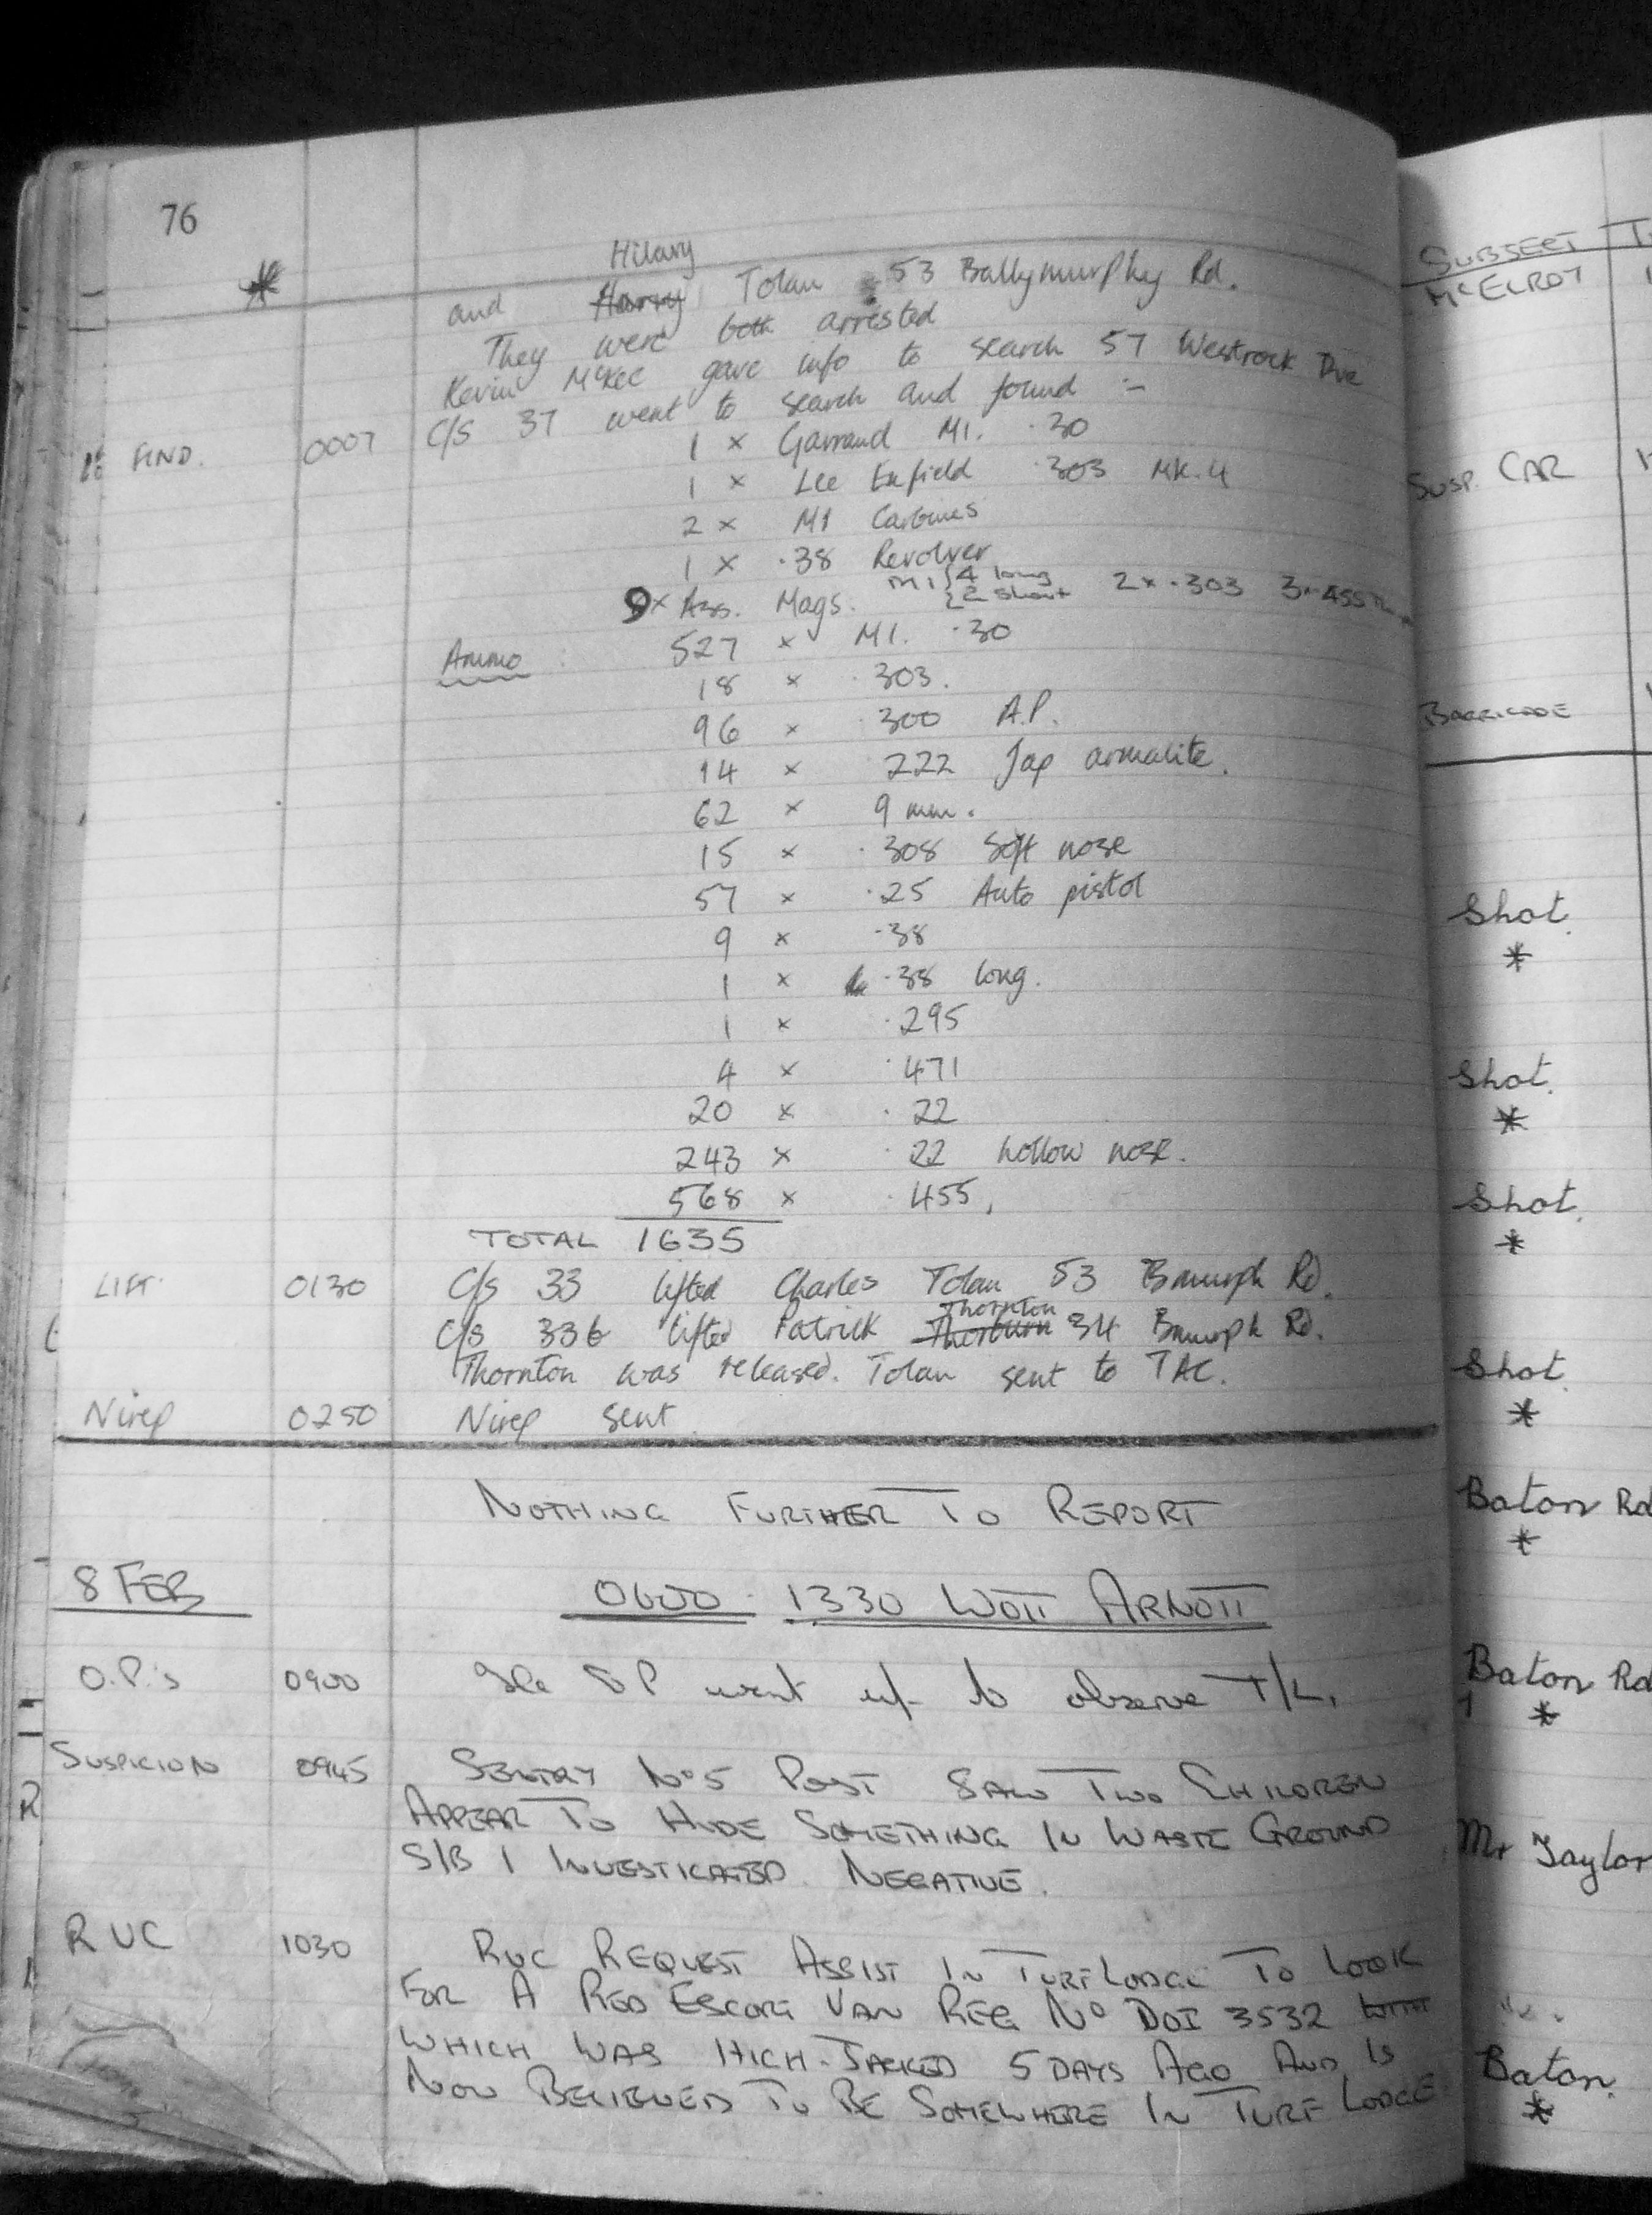 76
Hilary
and Harry Tolan 53 Ballymurphy Rd.
They were both arrested
Kevin McKee gave info to search 57 Westrock Dve
FIND. 0007 C/S 37 went to search and found :-
1 x Garraud M1. .30
1 x Lee Enfield .303 MK.4
2 x M1 Carbines
1 x .38 Revolver
9 x Ass. Mags. M1 { 4 long 2 short 2 x .303
Ammo : 527 x M1. .30
18 x .303.
96 x .300 A.P.
14 x 222 Jap armalite.
62 x 9 mm.
15 x .308 Soft nose
57 x .25 Auto pistol
9 x .38
1 x .38 long.
1 x .295
4 x .471
20 x .22
243 x .22 hollow nose.
568 x .455,
TOTAL 1635
LIFT 0130 C/s 33 lifted Charles Tolan 53 Bmurph Rd.
C/s 33b lifted Patrick Thorburn Thornton 34 Bmurph Rd.
Thornton was released. Tolan sent to TAC.
Nirep 0250 Nirep sent
NOTHING FURTHER TO REPORT
8 FEB 0600 - 1330 WOII ARNOTT
O.P.'s 0900 OP went to observe T/L.
SUSPICION 0945 SENTRY No 5 POST SAW TWO CHILDREN
APPEAR TO HIDE SOMETHING IN WASTE GROUND
S/B 1 INVESTIGATED. NEGATIVE.
RUC 1030 RUC REQUEST ASSIST IN TURF LODGE TO LOOK
FOR A RED ESCORT VAN REG No DOI 3532
WHICH WAS HIGH-JACKED 5 DAYS AGO AND IS
NOW BELIEVED TO BE SOMEWHERE IN TURF LODGE
SUBJECT
McELROY
SUSP. CAR
BARRICADE
Shot.
*
Shot.
*
Shot.
*
Shot
*
Baton Rd
*
Baton Rd
*
Mr Taylor
Baton.
*